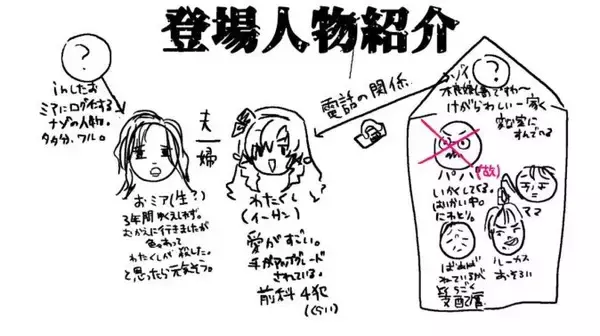 登場人物紹介
?
inしたお
ミアにログインする
ナゾの人物。
タタ分、ワル。
夫
婦
電話の関係
おミア(生?)
3年間ゆくえしれず。
むかえに行きましたが
色々あって
わたくしが殺した。
と思ったら元気そう。
わたくし
(イーサン)
愛がすごい。
手がアップグレード
されている。
前科4犯
(くらい)
?
不良娘ですわ〜
けがらわしい一家
変な家に
すんでいる
パパ(故)
いかくしてくる。
はいかい中。
にわとり。
ママ
ルーカス
おそろい
ばぁば
ねているが
支配層